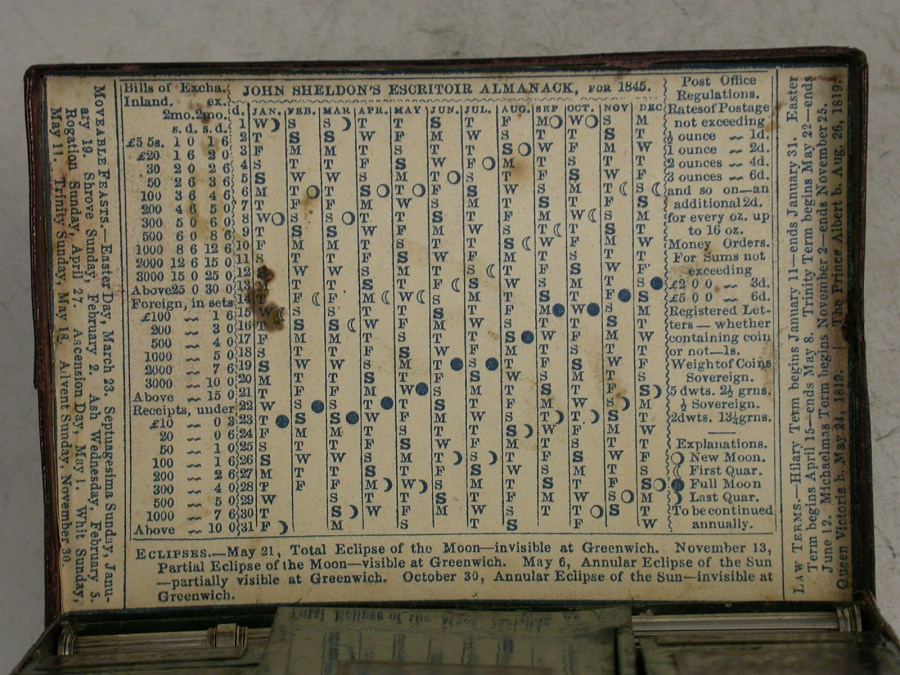 MOVEABLE FEASTS.—Easter Day, March 23. Septuagesima Sunday, Janu-
ary 19. Shrove Sunday, February 2. Ash Wednesday, February 5.
Rogation Sunday, April 27. Ascension Day, May 1. Whit Sunday,
May 11. Trinity Sunday, May 18. Advent Sunday, November 30.
Bills of Excha.
Inland. ex.
2mo. 2mo.
s. d. s. d.
£5 5s. 1 0 1 6
£20 1 6 2 0
30 2 0 2 6
50 2 6 3 6
100 3 6 4 6
200 4 6 5 0
300 5 0 6 0
500 6 0 8 6
1000 8 6 12 6
2000 12 6 15 0
3000 15 0 25 0
Above 25 0 30 0
Foreign, in sets
£100 1 6
200 3 0
500 4 0
1000 5 0
2000 7 6
3000 10 0
Above 15 0
Receipts, under
£10 0 3
20 0 6
50 1 0
100 1 6
200 2 6
300 4 0
500 5 0
1000 7 6
Above 10 0
JOHN SHELDON'S ESCRITOIR ALMANACK, FOR 1845.
d. JAN. FEB. MAR APR. MAY JUN. JUL. AUG. SEP OCT. NOV DEC
1 W S S T T S T F M W S M
2 T S S W F M W S T T S T
3 F M M T S T T S W F M W
4 S T T F S W F M T S T T
5 S W W S M T S T F S W F
6 M T T S T F S W S M T S
7 T F F M W S M T S T F S
8 W S S T T S T F M W S M
9 T S S W F M W S T T S T
10 F M M T S T T S W F M W
11 S T T F S W F M T S T T
12 S W W S M T S T F S W F
13 M T T S T F S W S M T S
14 T F F M W S M T S T F S
15 W S S T T S T F M W S M
16 T S S W F M W S T T S T
17 F M M T S T T S W F M W
18 S T T F S W F M T S T T
19 S W W S M T S T F S W F
20 M T T S T F S W S M T S
21 T F F M W S M T S T F S
22 W S S T T S T F M W S M
23 T S S W F M W S T T S T
24 F M M T S T T S W F M W
25 S T T F S W F M T S T T
26 S W W S M T S T F S W F
27 M T T S T F S W S M T S
28 T F F M W S M T S T F S
29 W S T T S T F M W S M
30 T S W F M W S T T S T
31 F M S T S F W
Post Office
Regulations.
Rates of Postage
not exceeding
½ ounce 1d.
1 ounce 2d.
2 ounces 4d.
3 ounces 6d.
and so on—an
additional 2d.
for every oz. up
to 16 oz.
Money Orders.
For Sums not
exceeding
£2 0 0 3d.
£5 0 0 6d.
Registered Let-
ters—whether
containing coin
or not—1s.
Weight of Coins
Sovereign.
5 dwts. 2½ grns.
½ Sovereign.
2dwts. 13¼grns.
Explanations.
New Moon.
First Quar.
Full Moon
Last Quar.
To be continued
annually.
ECLIPSES.—May 21, Total Eclipse of the Moon—invisible at Greenwich. November 13,
Partial Eclipse of the Moon—visible at Greenwich. May 6, Annular Eclipse of the Sun
—partially visible at Greenwich. October 30, Annular Eclipse of the Sun—invisible at
Greenwich.
LAW TERMS.—Hilary Term begins January 11—ends January 31. Easter
Term begins April 15—ends May 8. Trinity Term begins May 22—ends
June 12. Michaelmas Term begins November 2—ends November 25.
Queen Victoria b. May 24, 1819. The Prince Albert b. Aug. 26, 1819.